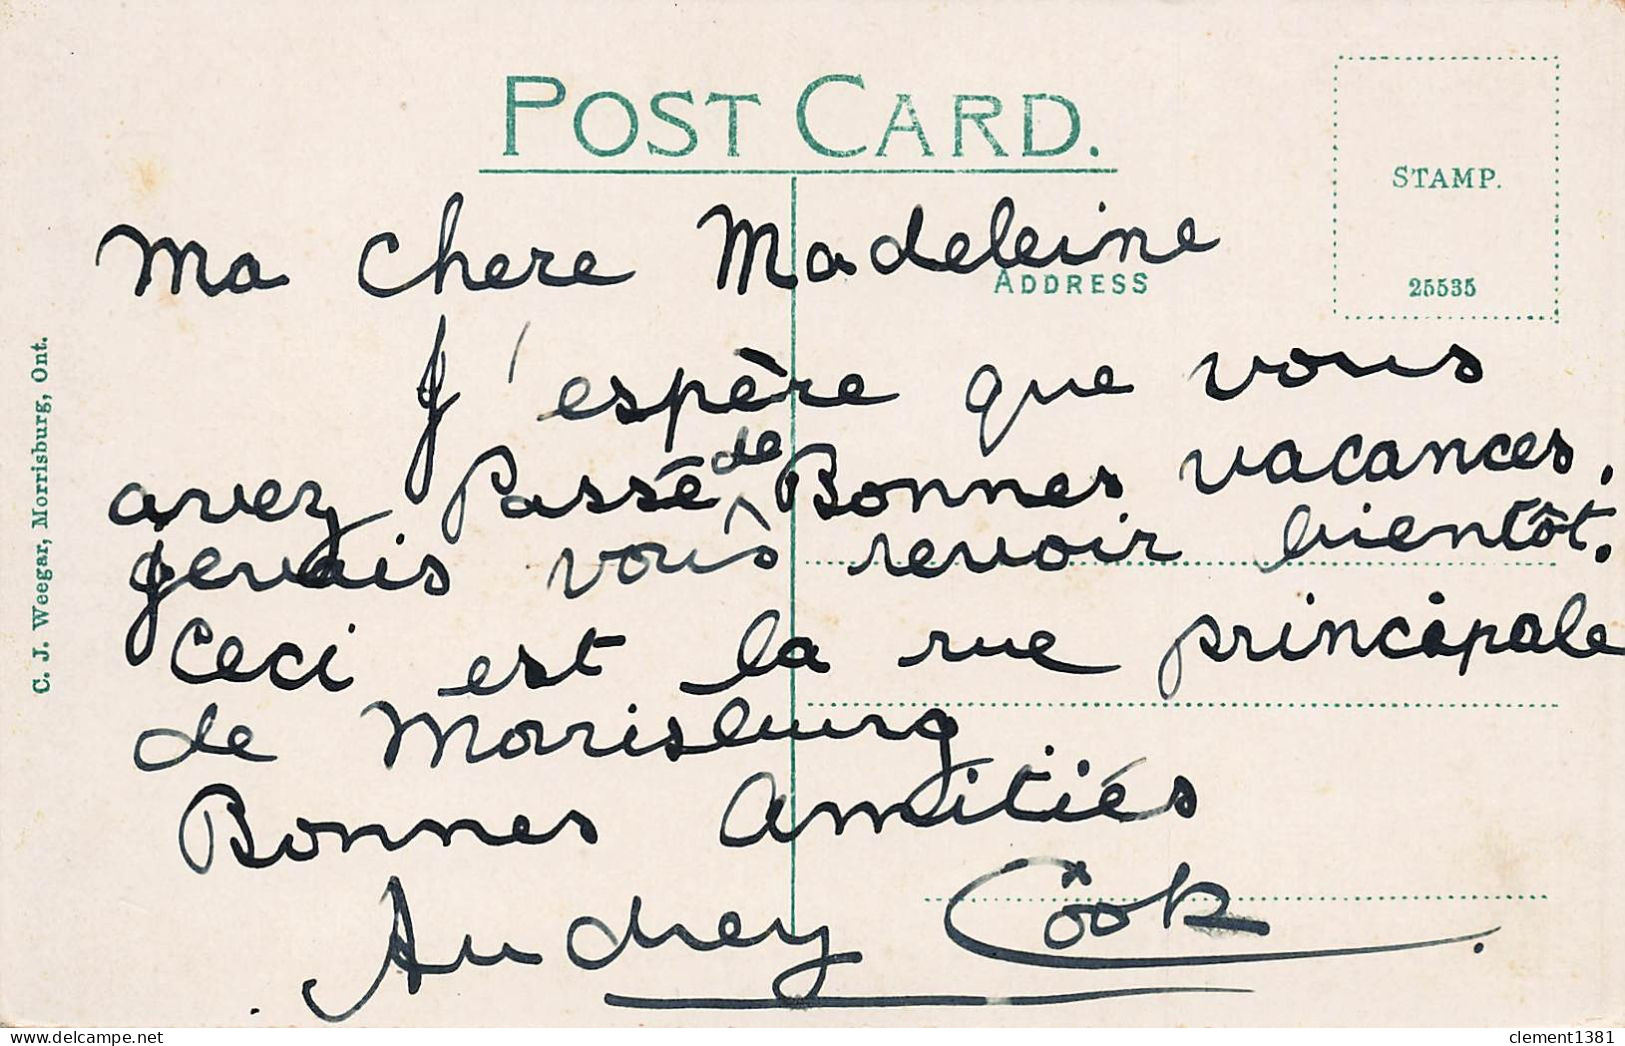 POST CARD.
STAMP.
25535
ADDRESS
C. J. Weegar, Morrisburg, Ont.
Ma chere Madeleine
J'espère que vous
avez Passé de Bonnes vacances.
Jevais vous revoir bientôt.
Ceci est la rue principale
de Morrisburg
Bonnes Amitiés
Audrey Cook
clement1381